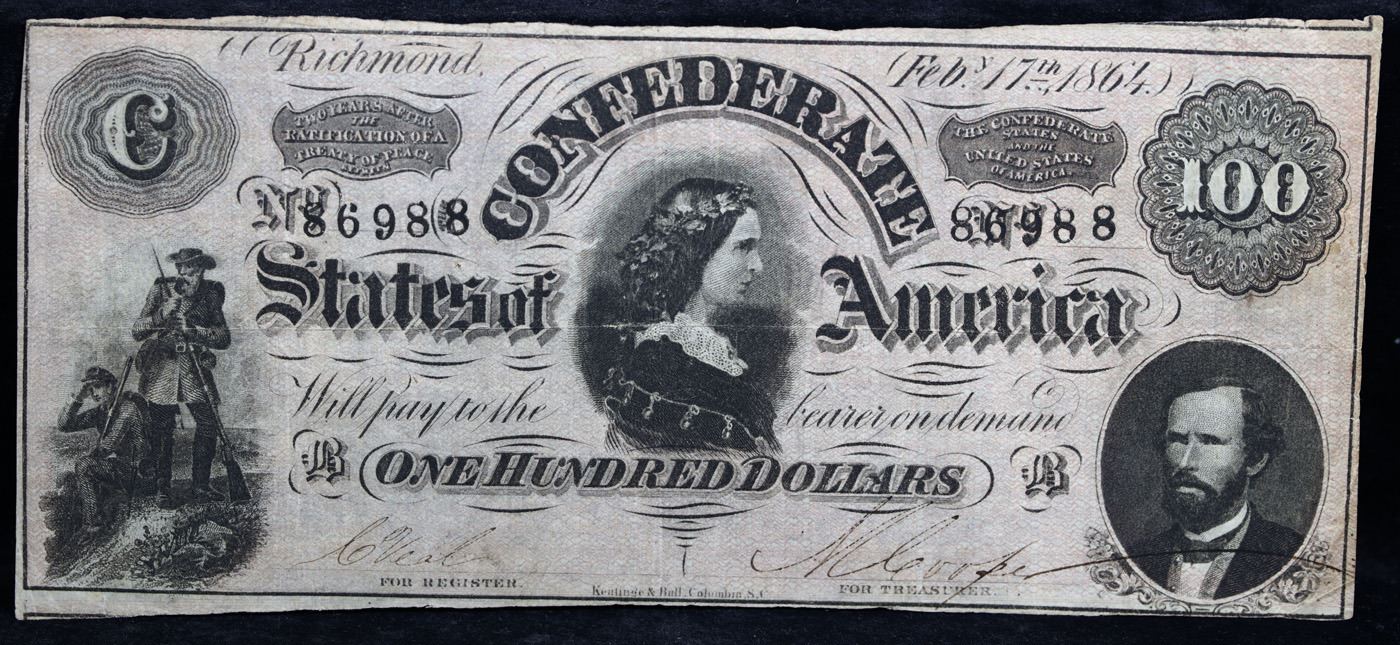 Richmond. Feb.y 17th, 1864.
C
TWO YEARS AFTER
THE
RATIFICATION OF A
TREATY OF PEACE
BETWEEN
THE CONFEDERATE
STATES
AND THE
UNITED STATES
OF AMERICA.
100
CONFEDERATE
No 86988
No 86988
States of America
Will pay to the bearer on demand
B ONE HUNDRED DOLLARS B
C Neal
M Cooper
FOR REGISTER.
Keatinge & Ball, Columbia, S.C.
FOR TREASURER.